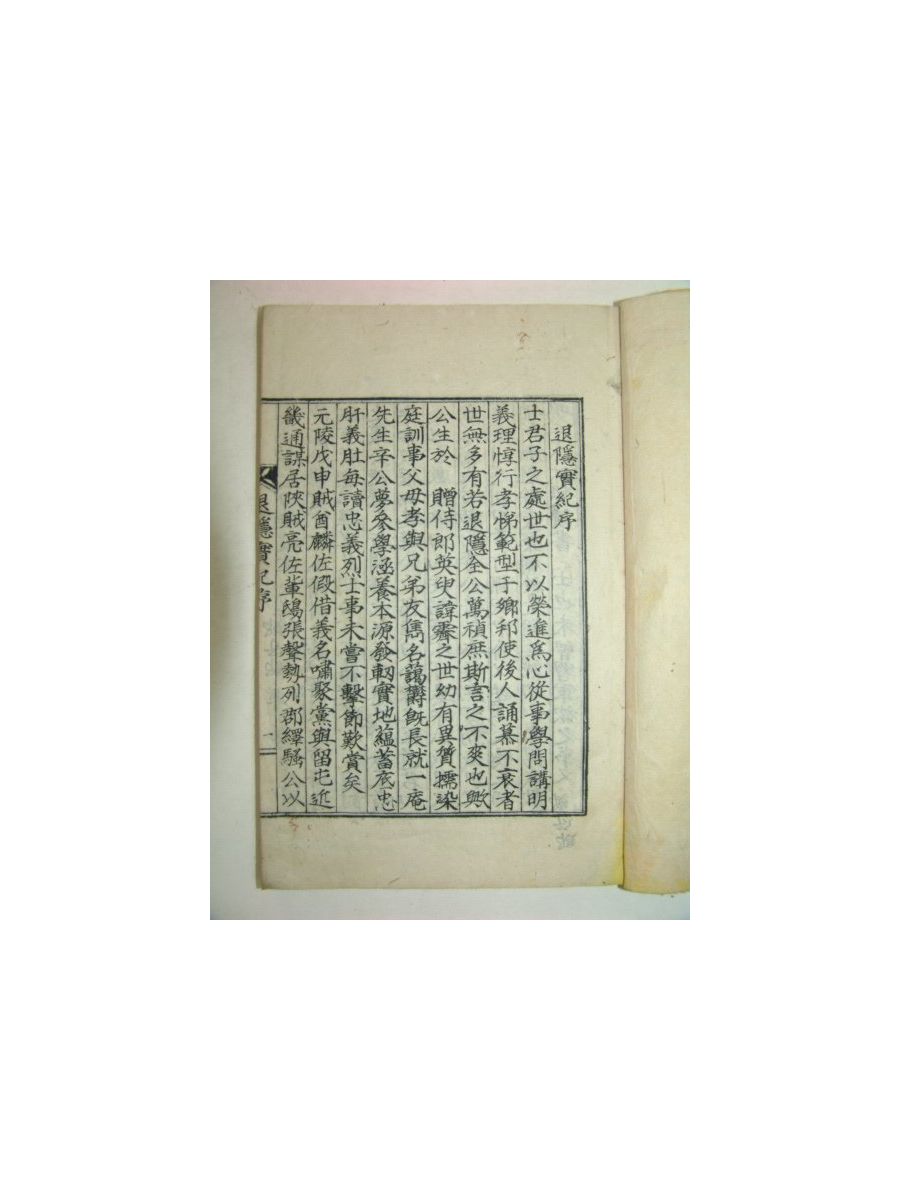 退隱實紀序
士君子之處世也不以榮進爲心從事學問講明
義理惇行孝悌範型于鄉邦使後人誦慕不衰者
世無多有若退隱全公萬禎庶斯言之不爽也歟
公生於 贈侍郎英叟諱霽之世幼有異質擩染
庭訓事父毋孝與兄弟友雋名藹欝旣長就一庵
先生辛公夢參學涵養本源發軔實地蘊蓄底忠
肝義肚每讀忠義烈士事未嘗不擊節歎賞矣
元陵戊申賊酋麟佐假借義名嘯聚黨與留屯近
畿通謀居陜賊亮佐軰鴟張聲勢列郡繹騷公以
退隱實紀序
一